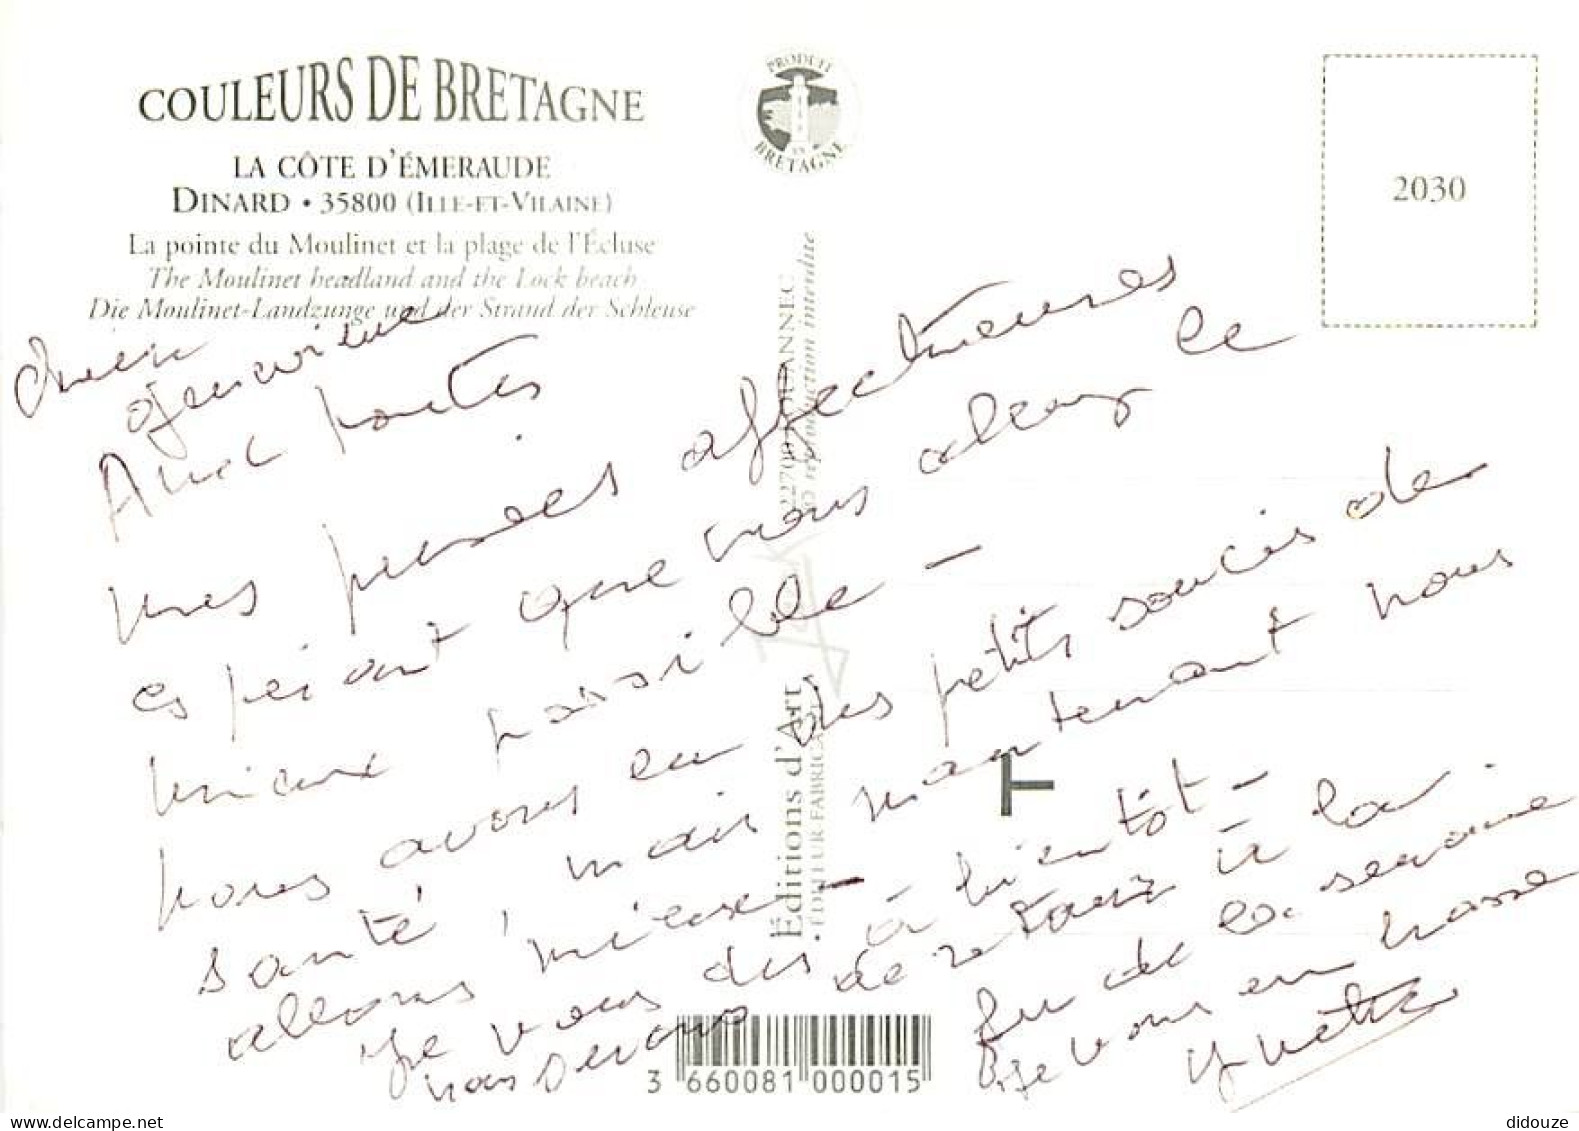 COULEURS DE BRETAGNE
LA CÔTE D'ÉMERAUDE
DINARD • 35800 (ILLE-ET-VILAINE)
La pointe du Moulinet et la plage de l'Écluse
The Moulinet headland and the Lock beach
Die Moulinet-Landzunge und der Strand der Schleuse
PRODUIT
EN
BRETAGNE
2030
22700 LOUANNEC
© reproduction interdite
Jack
Éditions d'Art
ÉDITEUR FABRICANT
Geneviève
Avec toutes
mes pensées affectueuses
espérant que vous allez le
mieux possible -
nous avons eu des petits soucis de
santé, mais maintenant nous
allons mieux -
Je vous dis à bientôt -
nous serons de retour à la
fin de la semaine
Je vous embrasse
Yvette
3 660081 000015
didouze